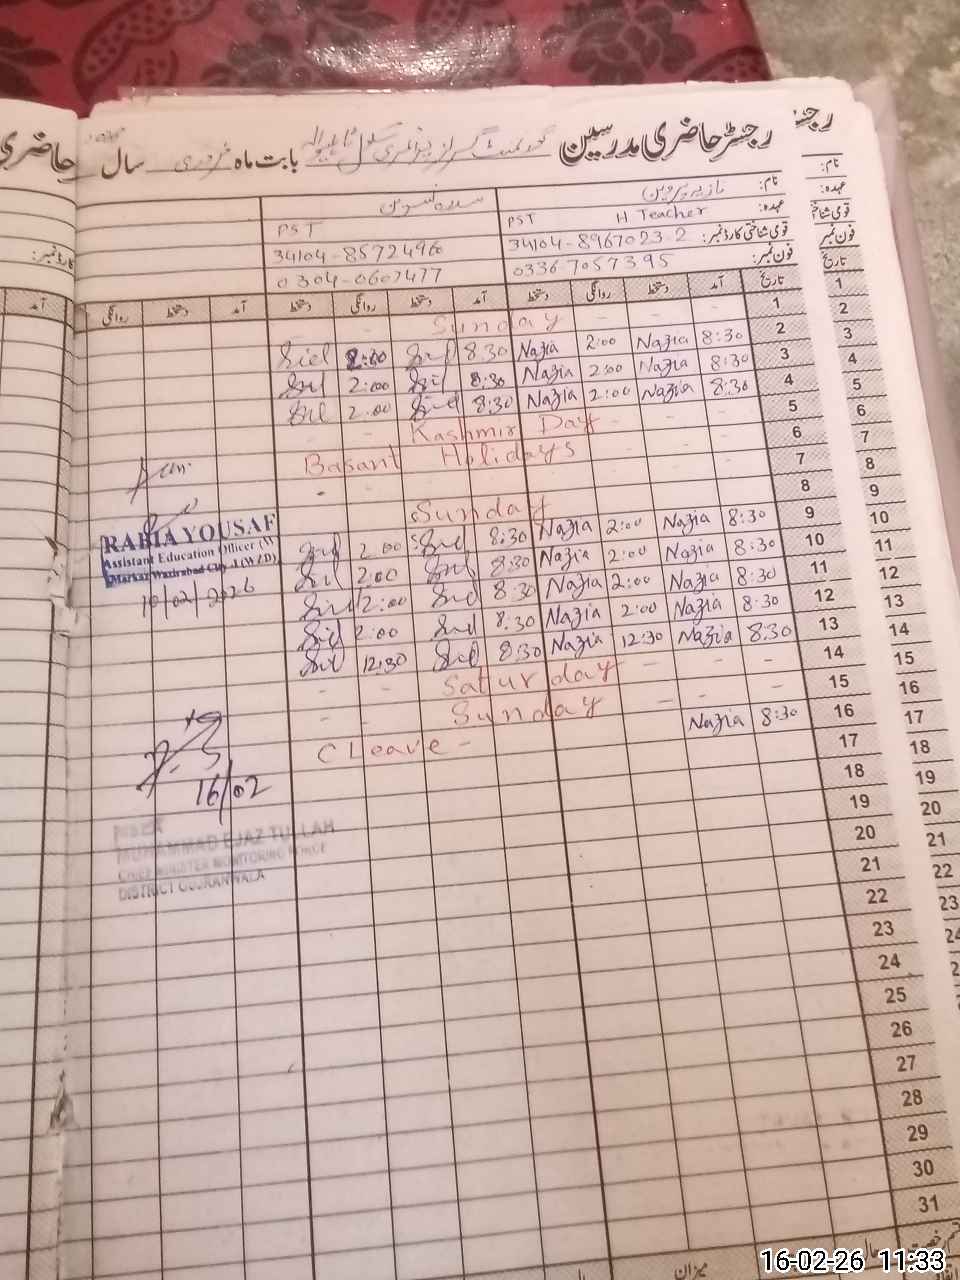 رجسٹر حاضری مدرسین گورنمنٹ گرلز پرائمری سکول بابت ماہ فروری سال
حاضری
رجسٹر
نام: نازیہ پروین
عہدہ: H Teacher PST PST
قومی شناختی کارڈ نمبر: 34104-8967023-2 34104-8572496
فون نمبر: 0336-7057395 0304-0607477
تاریخ آمد دستخط روانگی دستخط آمد دستخط روانگی دستخط آمد دستخط روانگی
1 - - Sunday - -
2 8:30 Nazia 2:00 Nazia 8:30 2:00
3 8:30 Nazia 2:00 Nazia 8:30 2:00
4 8:30 Nazia 2:00 Nazia 8:30 2:00
5 - - Kashmir Day - -
6 Basant Holidays
7
8 Sunday
9 8:30 Nazia 2:00 Nazia 8:30 2:00
10 8:30 Nazia 2:00 Nazia 8:30 2:00
11 8:30 Nazia 2:00 Nazia 8:30 2:00
12 8:30 Nazia 2:00 Nazia 8:30 2:00
13 8:30 Nazia 12:30 Nazia 8:30 12:30
14 - - - Saturday - -
15 - - - Sunday - -
16 8:30 Nazia C Leave -
17
18
19
20
21
22
23
24
25
26
27
28
29
30
31
RABIA YOUSAF
Assistant Education Officer (W)
Markaz Wazirabad City-1 (WZD)
10/02/2026
16/02
MUHAMMAD EJAZ TULLAH
CHIEF MINISTER MONITORING FORCE
DISTRICT GUJRANWALA
میزان
نام:
عہدہ:
قومی شناختی
فون نمبر
تاریخ
1
2
3
4
5
6
7
8
9
10
11
12
13
14
15
16
17
18
19
20
21
22
23
24
کارڈ نمبر:
آمد
16-02-26 11:33